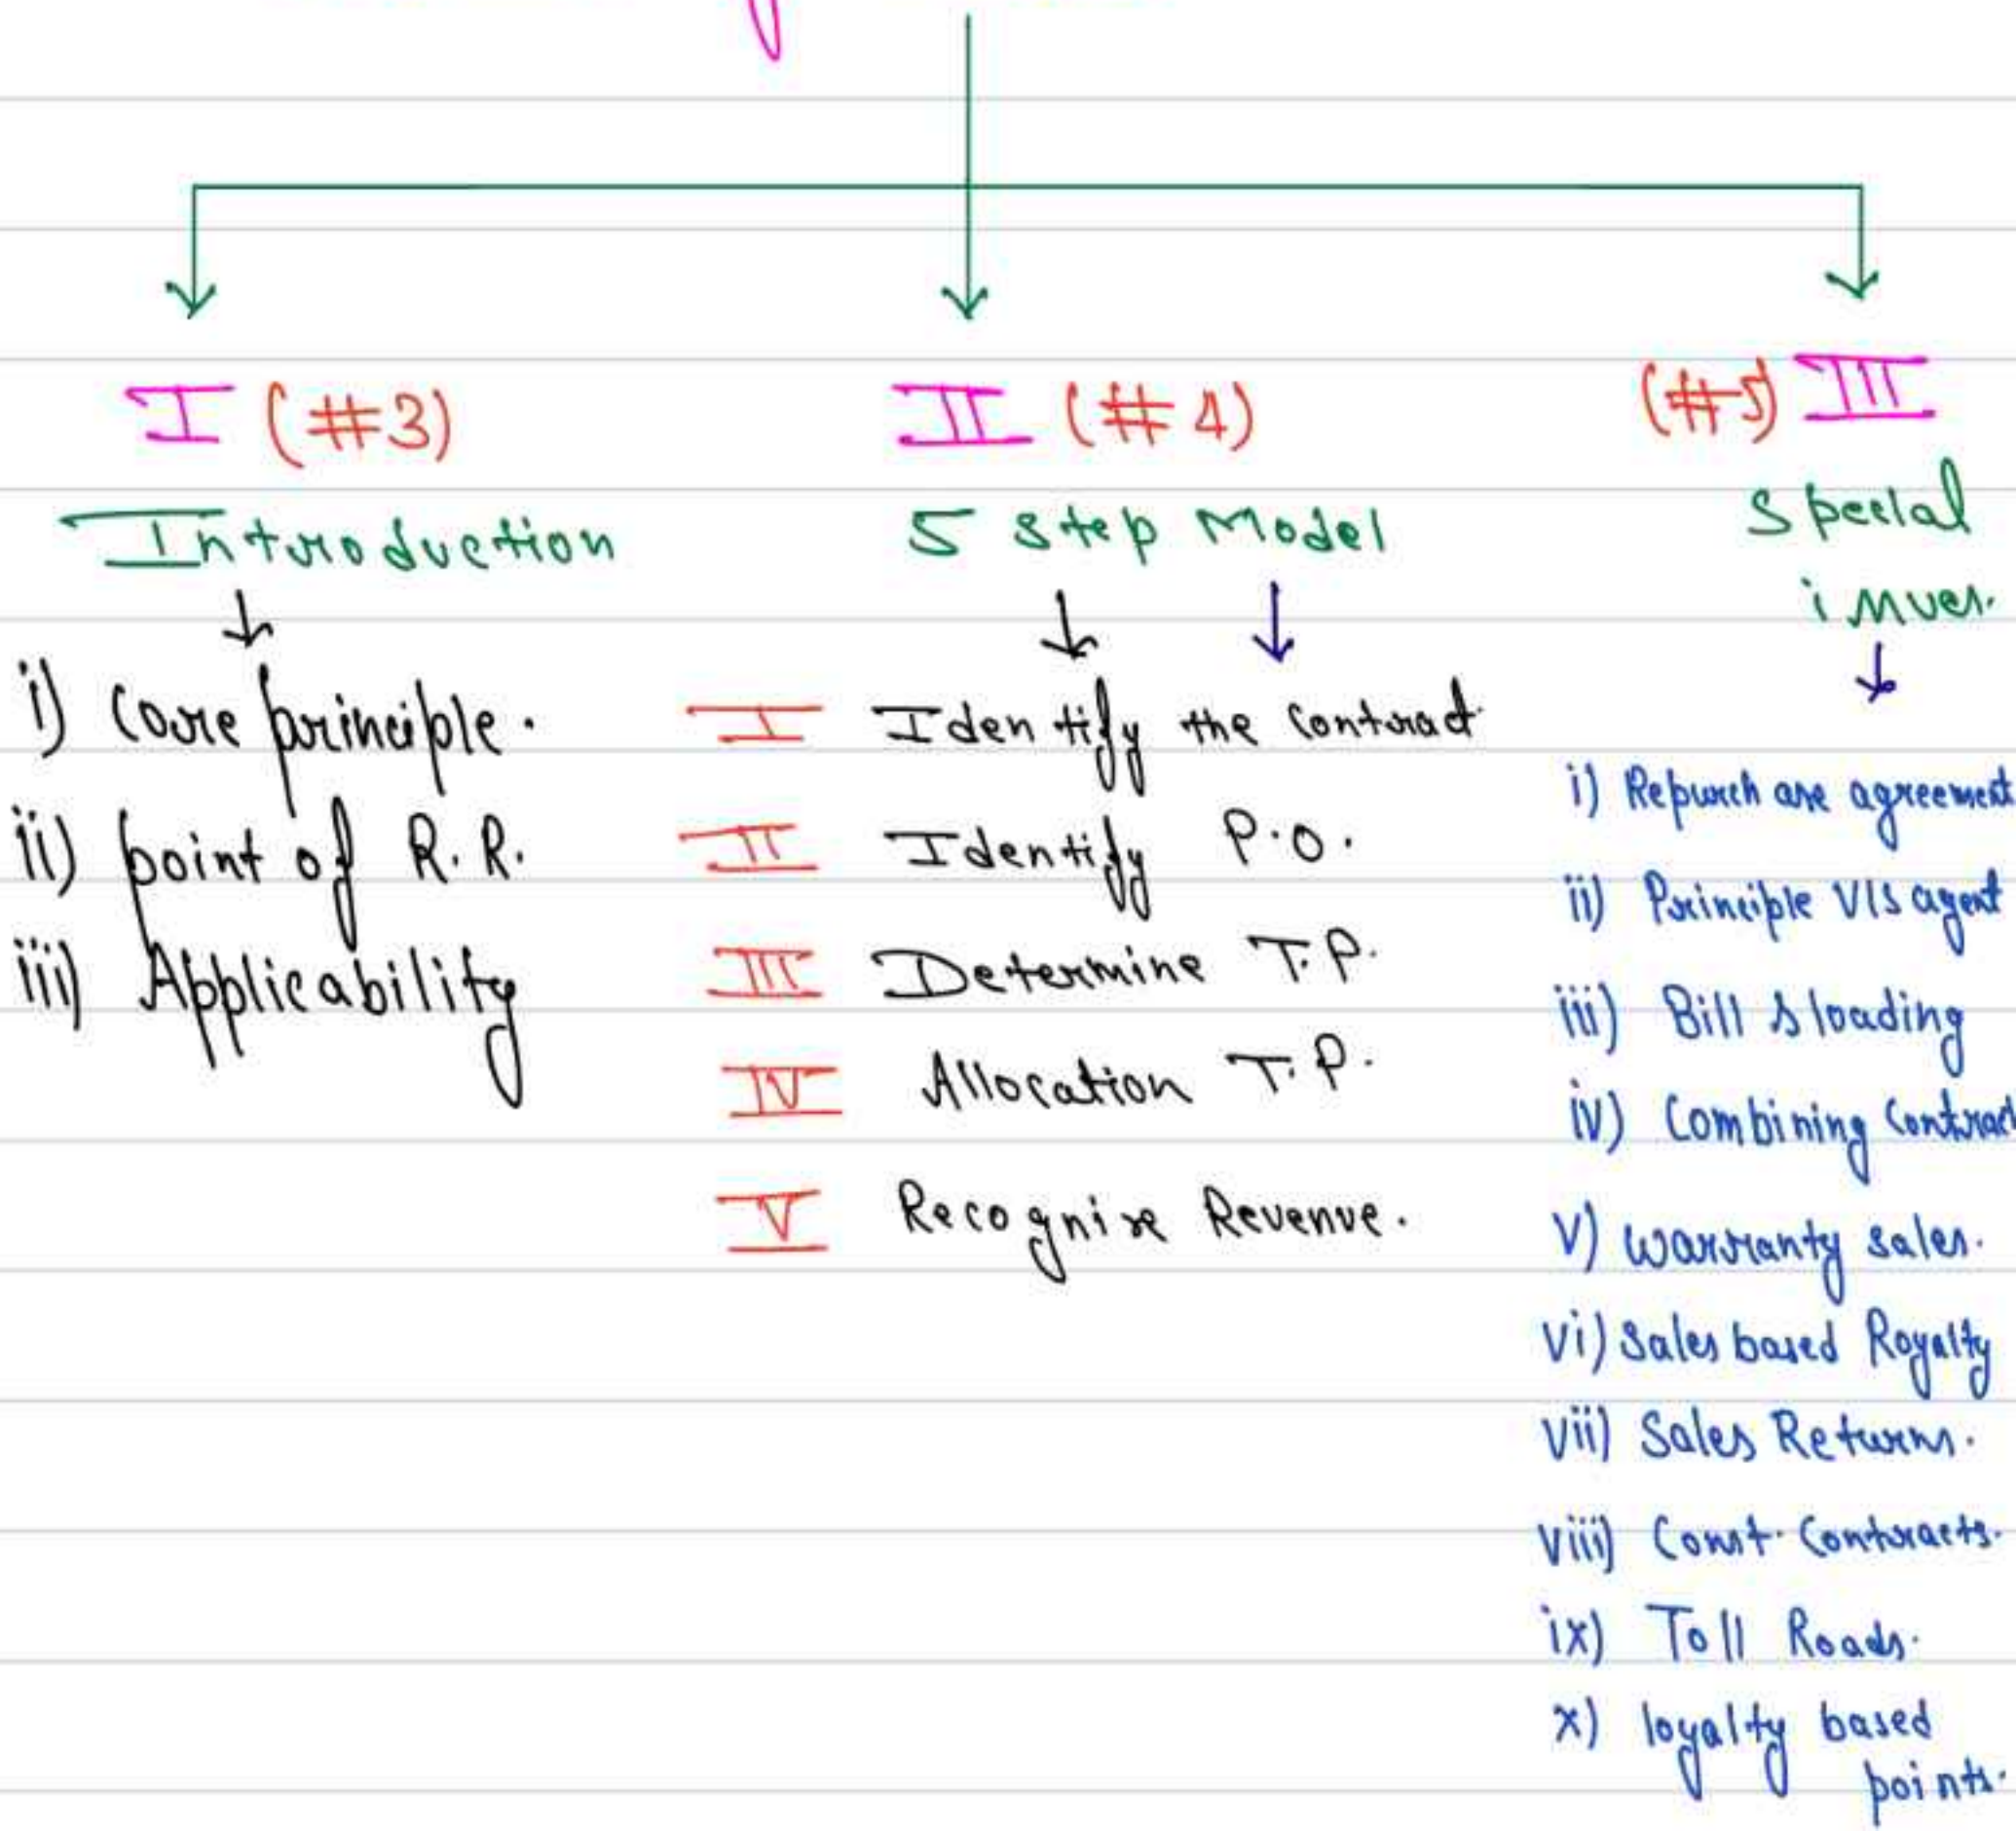 I (#3)
Introduction
i) Core principle.
ii) point of R.R.
iii) Applicability
II (#4)
5 step Model
I Identify the Contract
II Identify P.O.
III Determine T.P.
IV Allocation T.P.
V Recognise Revenue.
(#5) III
special
i) Repurchase agreement
ii) Principle V/s agent
iii) Bill loading
iv) Combining Contract
v) warranty sales.
vi) Sales based Royalty
vii) Sales Returns.
viii) Const. Contracts.
ix) Toll Roads.
x) loyalty based
points.